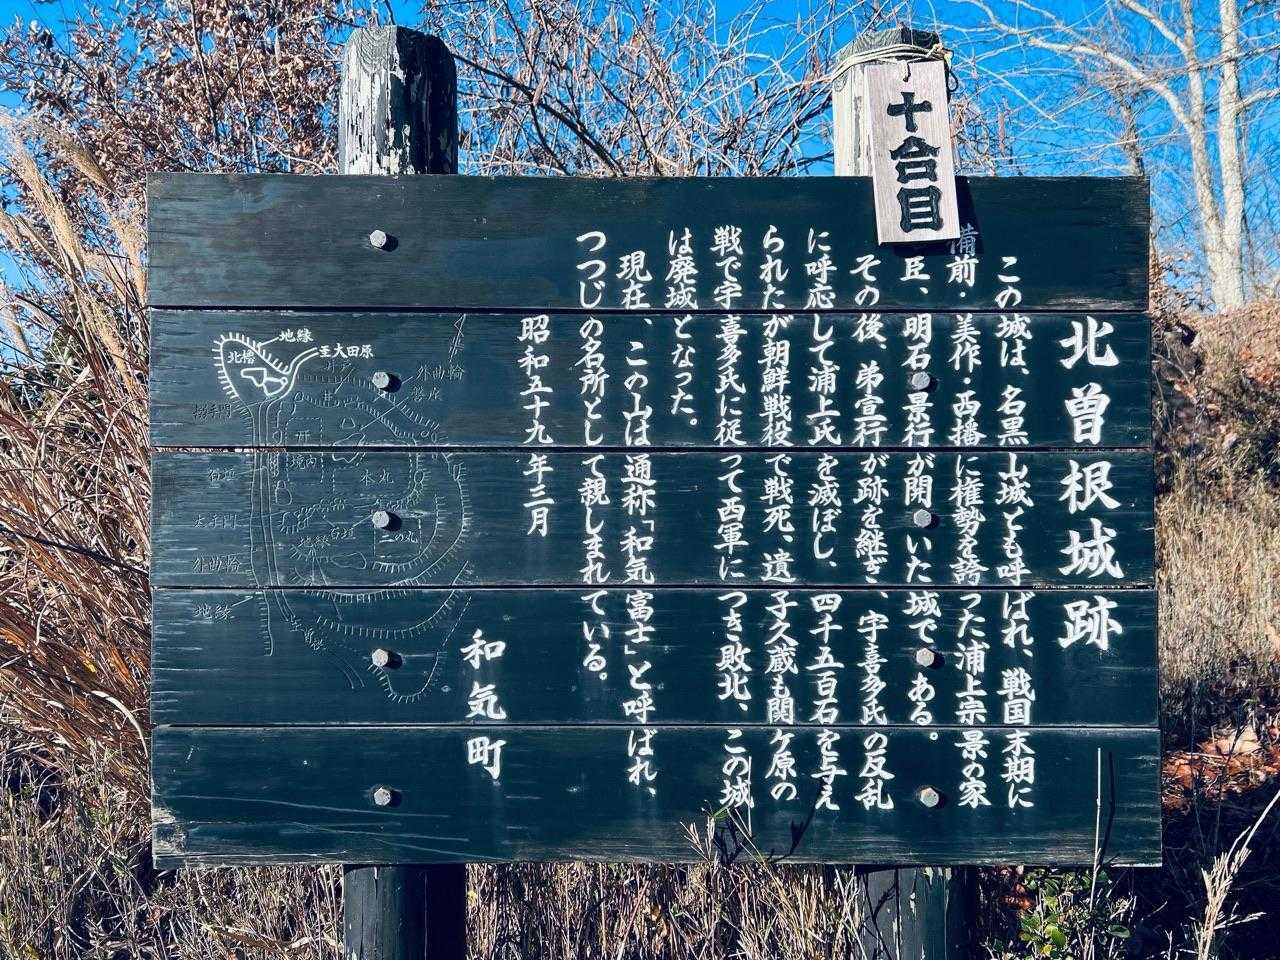 十合目
北曽根城跡
この城は、名黒山城とも呼ばれ、戦国末期に
備前・美作・西播に権勢を誇った浦上宗景の家
臣、明石景行が開いた城である。
その後、弟宣行が跡を継ぎ、宇喜多氏の反乱
に呼応して浦上氏を滅ぼし、四千五百石を与え
られたが朝鮮戦役で戦死、遺子久蔵も関ケ原の
戦で宇喜多氏に従って西軍につき敗北、この城
は廃城となった。
現在、この山は通称「和気富士」と呼ばれ、
つつじの名所として親しまれている。
昭和五十九年三月
和気町
地縁
北櫓
至大田原
井戸
外曲輪
磐座
搦手門
井
境内
本丸
石垣
大手門
二の丸
地縁
石垣
外曲輪
地縁